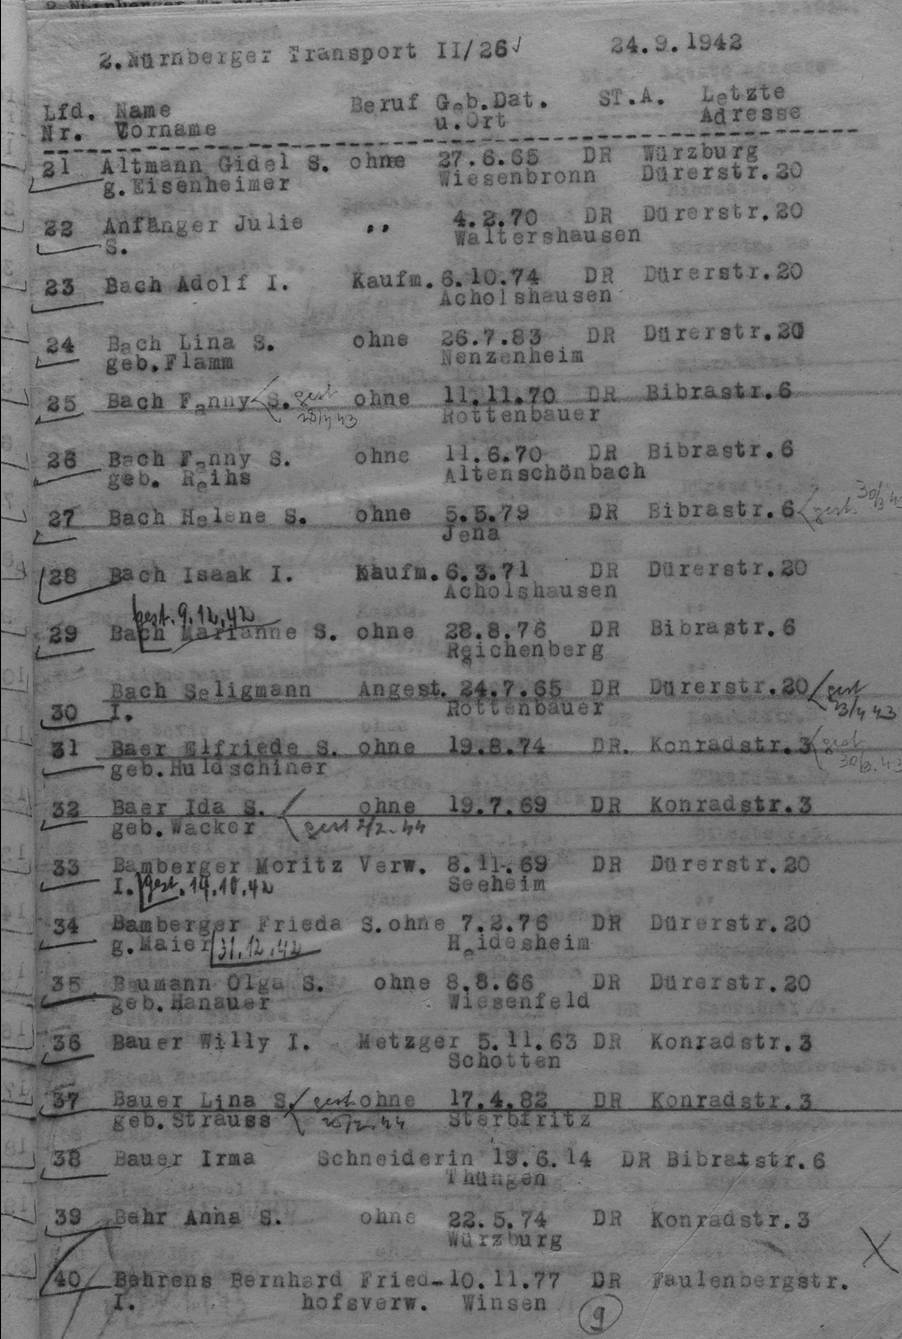 2.Nürnberger Transport II/26 24.9.1942
Lfd. Name Beruf Geb.Dat. ST.A. Letzte
Nr. Vorname u.Ort Adresse
21 Altmann Gidel S. ohne 27.6.65 DR Würzburg
g.Eisenheimer Wiesenbronn Dürerstr.20
22 Anfänger Julie ,, 4.2.70 DR Dürerstr.20
S. Waltershausen
23 Bach Adolf I. Kaufm. 6.10.74 DR Dürerstr.20
Acholshausen
24 Bach Lina S. ohne 26.7.83 DR Dürerstr.20
geb.Flamm Nenzenheim
25 Bach Fanny S. gest ohne 11.11.70 DR Bibrastr.6
Rottenbauer
26 Bach Fanny S. ohne 11.6.70 DR Bibrastr.6
geb. Reihs Altenschönbach
27 Bach Helene S. ohne 5.5.79 DR Bibrastr.6 gest.
Jena
28 Bach Isaak I. Kaufm. 6.3.71 DR Dürerstr.20
Acholshausen
gest. 9.12.42
29 Bach Marianne S. ohne 28.8.76 DR Bibrastr.6
Reichenberg
Bach Seligmann Angest. 24.7.65 DR Dürerstr.20 gest
30 I. Rottenbauer
31 Baer Elfriede S. ohne 19.8.74 DR. Konradstr.3 gest
geb.Huldschiner
32 Baer Ida S. ohne 19.7.69 DR Konradstr.3
geb.Wacker gest
33 Bamberger Moritz Verw. 8.11.69 DR Dürerstr.20
I. gest. Seeheim
34 Bamberger Frieda S.ohne 7.2.76 DR Dürerstr.20
g.Maier 31.12.42 Heidesheim
35 Baumann Olga S. ohne 8.8.66 DR Dürerstr.20
geb.Hanauer Wiesenfeld
36 Bauer Willy I. Metzger 5.11.63 DR Konradstr.3
Schotten
37 Bauer Lina S. gest ohne 17.4.82 DR Konradstr.3
geb.Strauss Sterbfritz
38 Bauer Irma Schneiderin 19.6.14 DR Bibratstr.6
Thüngen
39 Behr Anna S. ohne 22.5.74 DR Konradstr.3
Würzburg
40 Behrens Bernhard Fried-10.11.77 DR Faulenbergstr.
I. hofsverw. Winsen 9